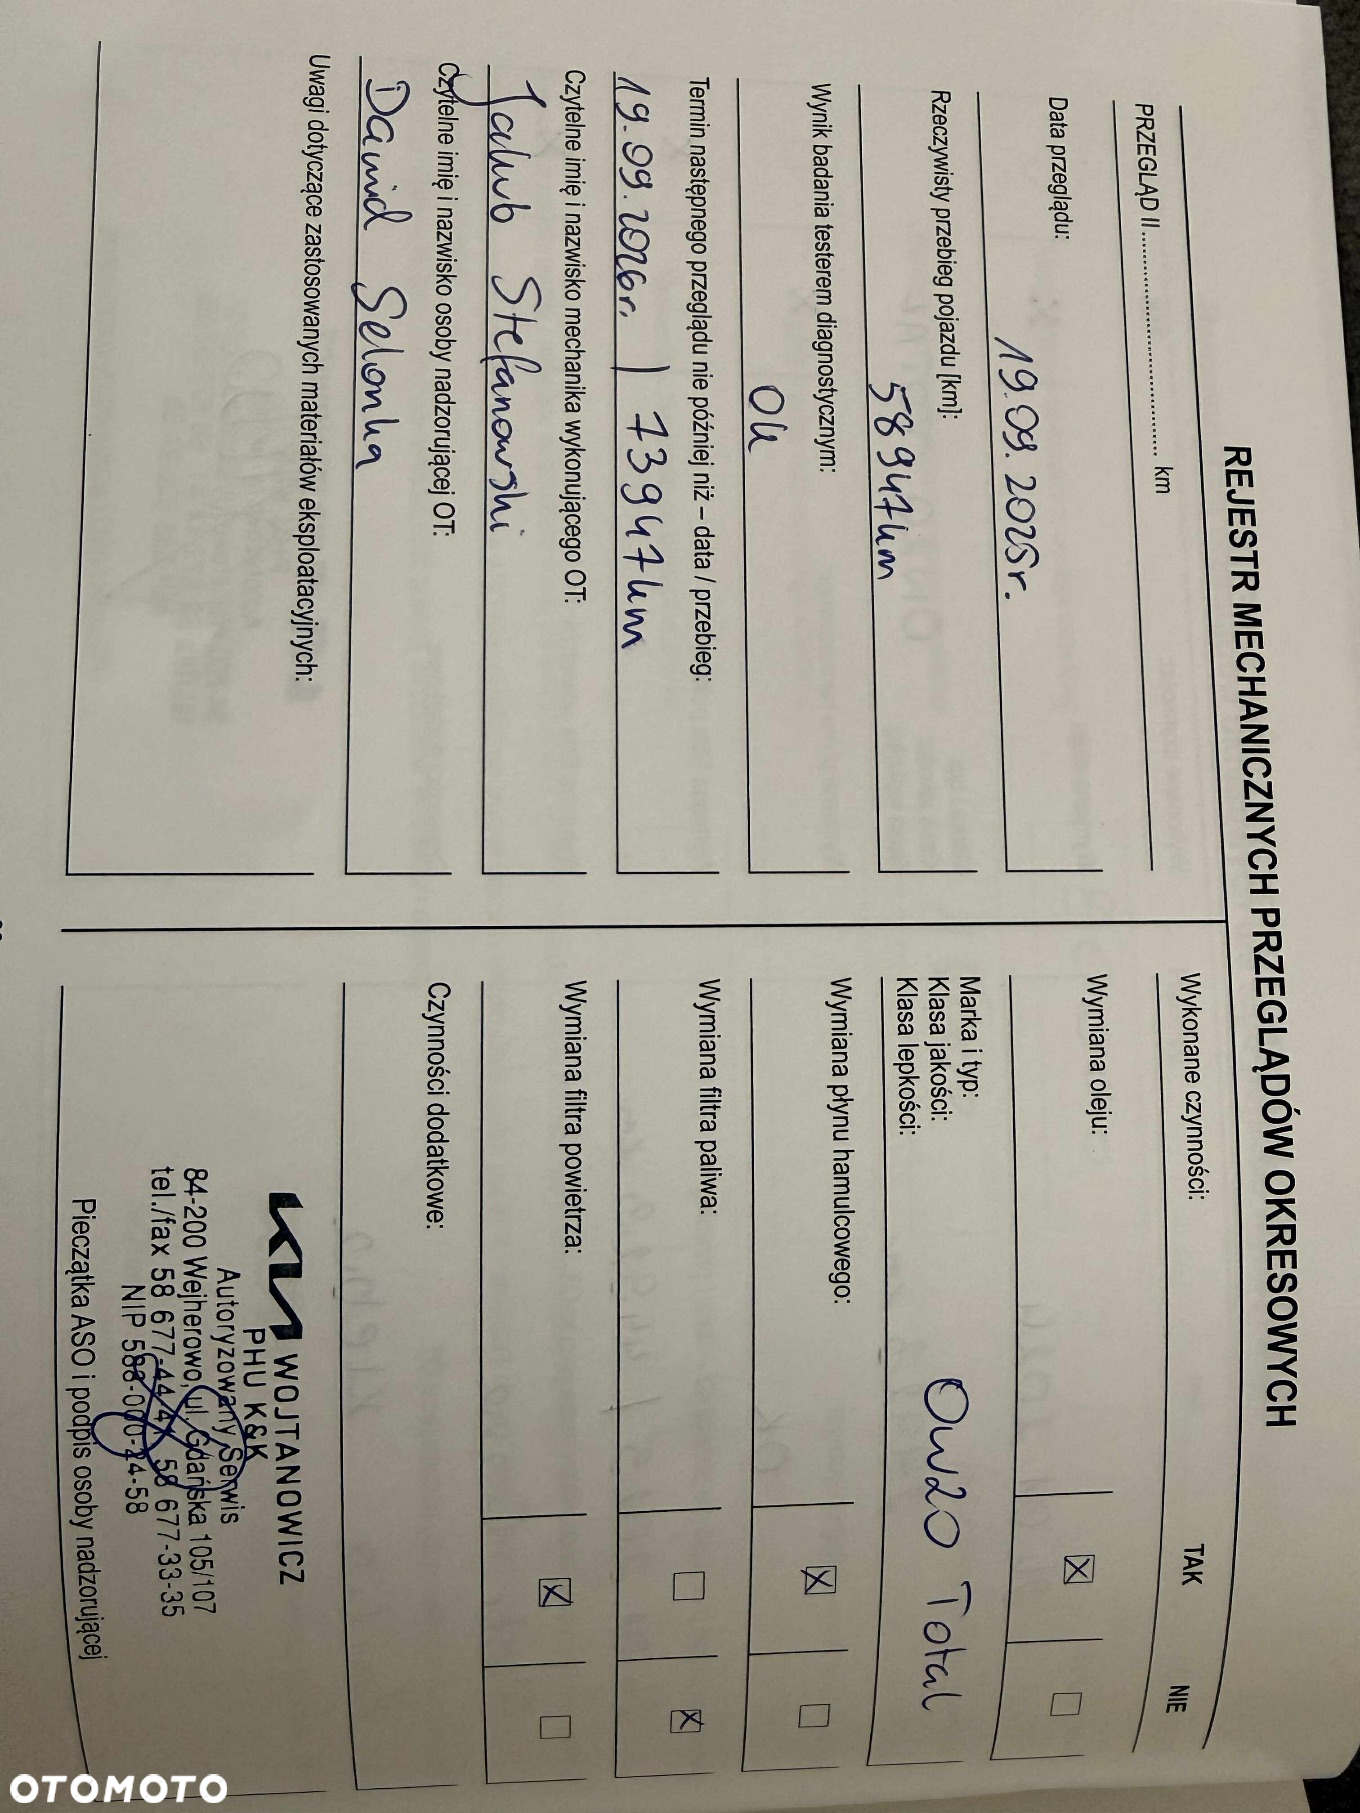 REJESTR MECHANICZNYCH PRZEGLĄDÓW OKRESOWYCH
PRZEGLĄD II .................................... km
Data przeglądu:
19.09.2025r.
Rzeczywisty przebieg pojazdu [km]:
58947km
Wynik badania testerem diagnostycznym:
Ok
Termin następnego przeglądu nie później niż – data / przebieg:
19.09.2026r. / 73947km
Czytelne imię i nazwisko mechanika wykonującego OT:
Jakub Stefanowski
Czytelne imię i nazwisko osoby nadzorującej OT:
Dawid Selonka
Uwagi dotyczące zastosowanych materiałów eksploatacyjnych:
Wykonane czynności: TAK NIE
Wymiana oleju: ☒ ☐
Marka i typ:
Klasa jakości:
Klasa lepkości:
0w20 Total
Wymiana płynu hamulcowego: ☒ ☐
Wymiana filtra paliwa: ☐ ☒
Wymiana filtra powietrza: ☒ ☐
Czynności dodatkowe:
KIA WOJTANOWICZ
PHU K&K
Autoryzowany Serwis
84-200 Wejherowo, ul. Gdańska 105/107
tel./fax 58 677-44-47, 58 677-33-35
NIP 588-000-24-58
Pieczątka ASO i podpis osoby nadzorującej
OTOMOTO